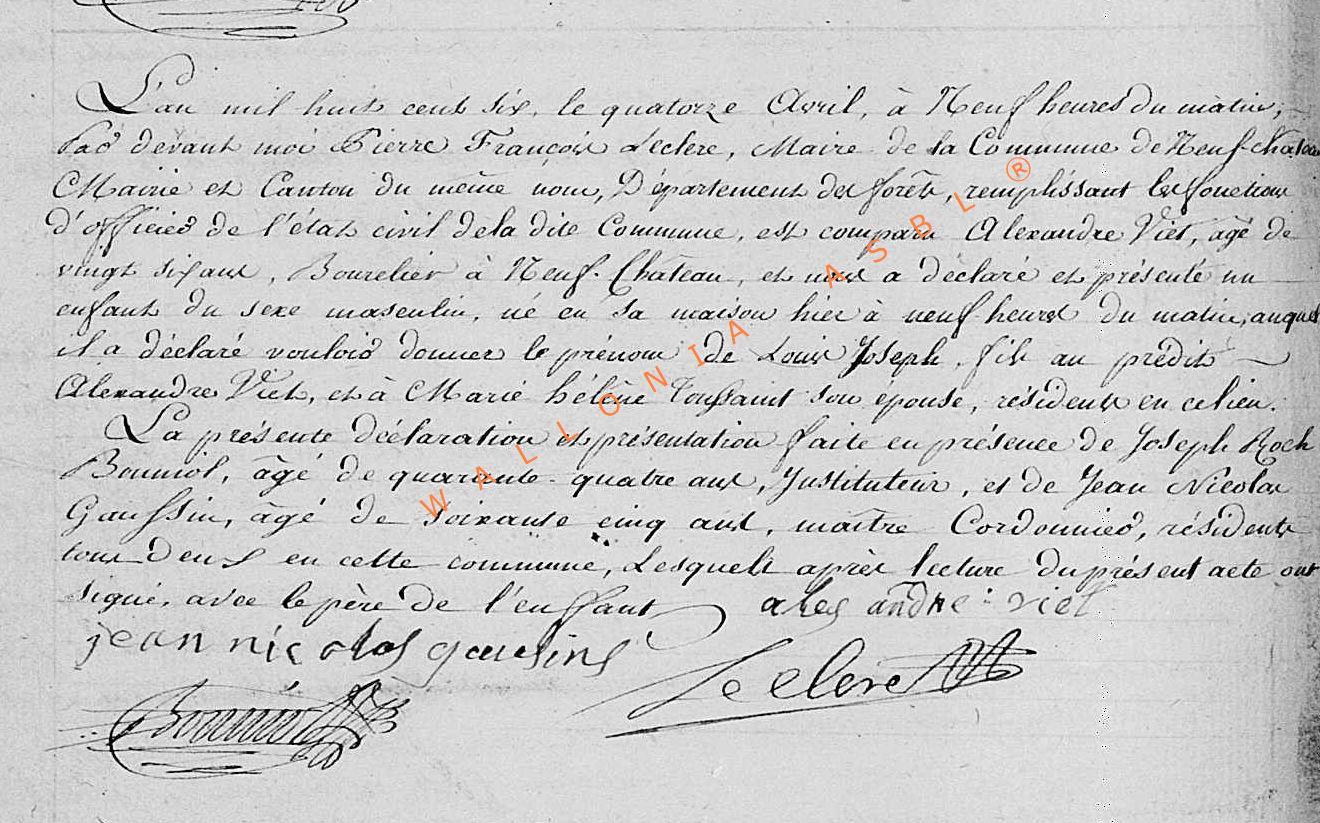 L'an mil huit cent six, le quatorze Avril, à Neuf heures du matin,
Par devant moi Pierre François Leclere, Maire de la Commune de Neufchateau
Mairie et Canton du même nom, Département des forêts, remplissant les fonctions
d'officier de l'état civil de la dite Commune, est comparu Alexandre Viet, âgé de
vingt six ans, Bourelier à Neuf-Château, et nous a déclaré et présenté un
enfant du sexe masculin, né en sa maison hier à neuf heures du matin, auquel
il a déclaré vouloir donner le prénom de Louis Joseph, fils au prédit
Alexandre Viet, et à Marie hélène Toussaint son épouse, résidents en ce lieu.
La présente déclaration et présentation faite en présence de Joseph Roch
Bonniol, âgé de quarante-quatre ans, Instituteur, et de Jean Nicolas
Gaussin, âgé de soixante cinq ans, maître Cordonnier, résidents
tous deux en cette commune, Lesquels après lecture du présent acte ont
signé, avec le père de l'enfant alexandre viet
jean nicolas gausins
Leclere
Bonniol
WALLONIA ASBL ®